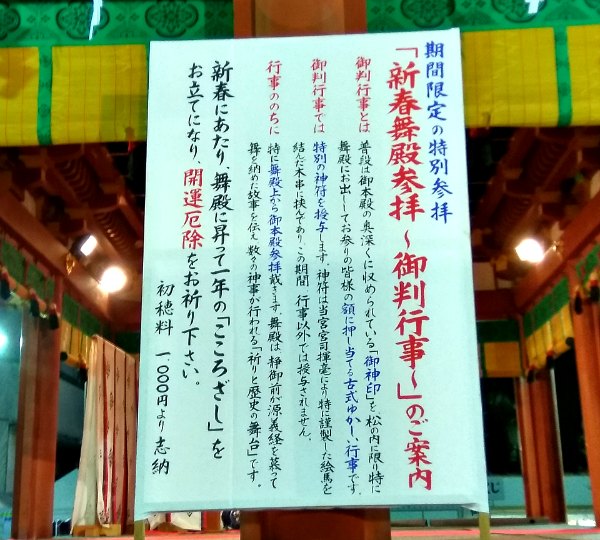 期間限定の特別参拝
「新春舞殿参拝～御判行事～」のご案内
御判行事とは
普段は御本殿の奥深くに収められている「御神印」を、松の内に限り特に
舞殿にお出ししてお参りの皆様の額に押し当てる古式ゆかしい行事です。
御判行事では
特別の神符を授与します。神符は当宮宮司揮毫により特に謹製した絵馬を
結んだ木串に挟んであり、この期間、行事以外では授与されません。
行事ののちに
特に舞殿上から御本殿参拝戴きます。舞殿は、静御前が源義経を慕って
舞を納めた故事を伝え、数々の神事が行われる「祈りと歴史の舞台」です。
新春にあたり、舞殿に昇って一年の「こころざし」を
お立てになり、開運厄除をお祈り下さい。
初穂料 一、〇〇〇円より志納